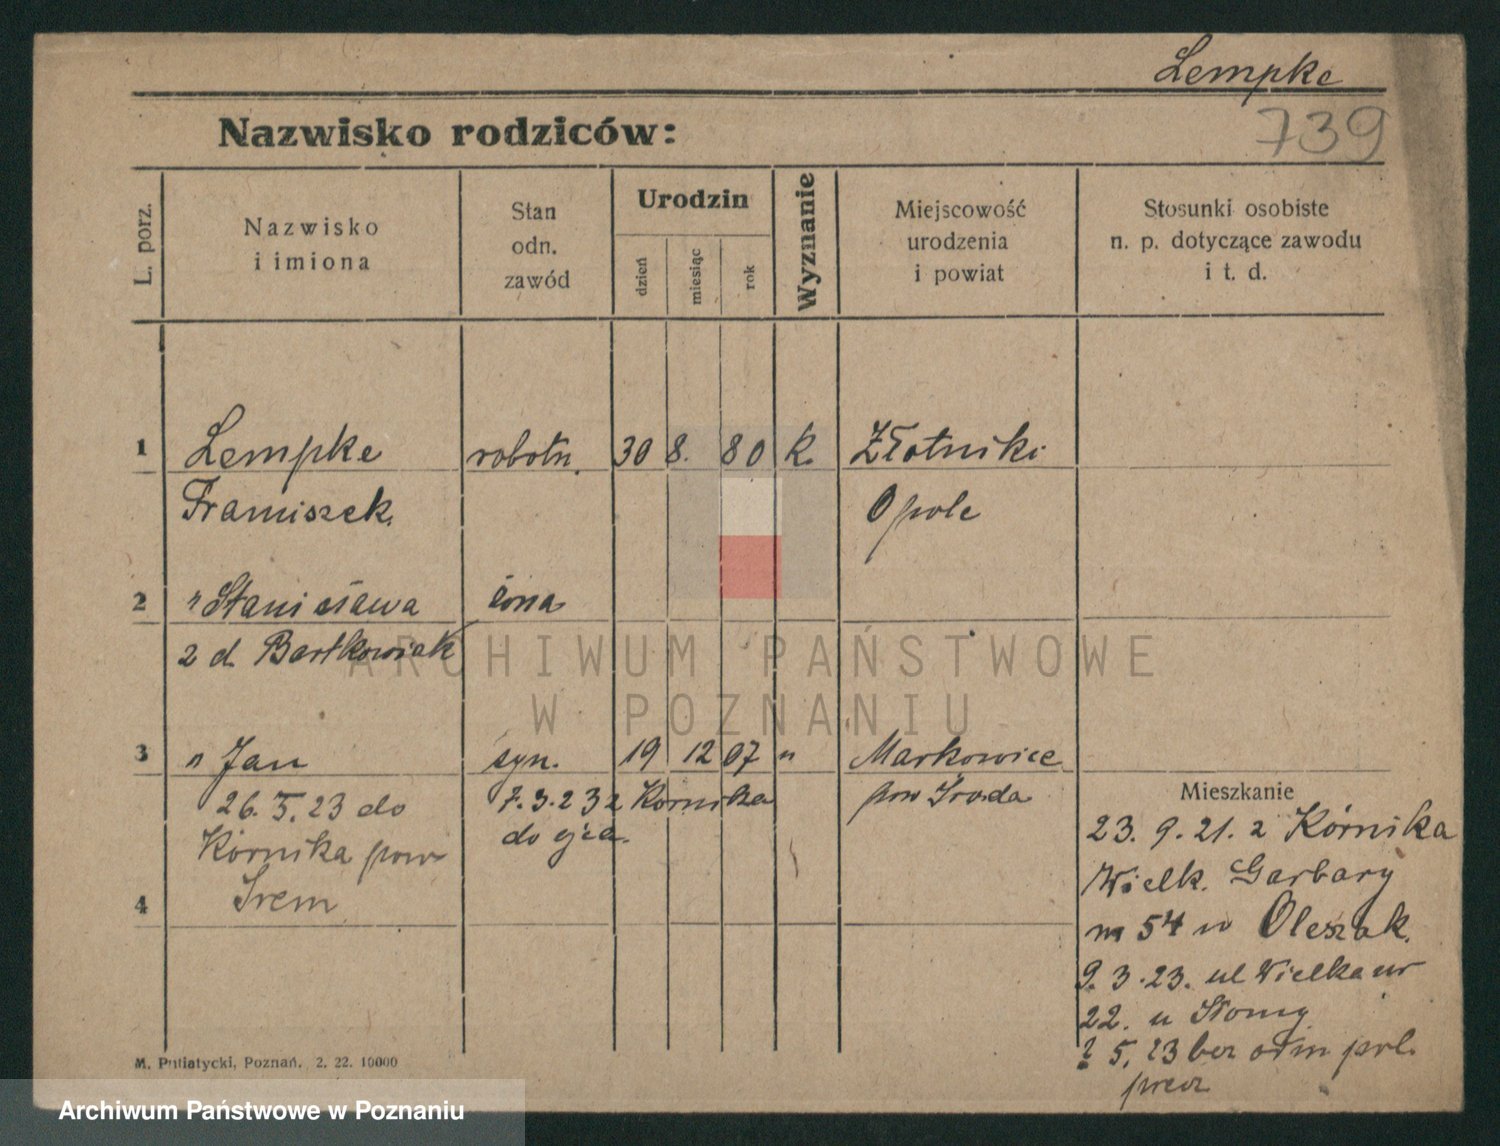 Lempke
739
Nazwisko rodziców:
L. porz.
Nazwisko
i imiona
Stan
odn.
zawód
Urodzin
dzień
miesiąc
rok
Wyznanie
Miejscowość
urodzenia
i powiat
Stosunki osobiste
n. p. dotyczące zawodu
i t. d.
1 Lempke robotn. 30 8. 80 k. Złotniki
Franciszek Opole
2 " Stanisława żona
z d. Bartkowiak
ARCHIWUM PAŃSTWOWE
W POZNANIU
3 " Jan syn. 19 12 07 " Markowice
26. 5. 23 do
Kórnika pow
Śrem
7. 3. 23 z Kórnika
do ojca.
pow Środa
4
Mieszkanie
23. 9. 21. z Kórnika
Wielk. Garbary
m 54 u Oleszak.
9. 3. 23. ul Wielka nr
22. u
? 5. 23 bez odm pol.
M. Putiatycki, Poznań. 2. 22. 10000
Archiwum Państwowe w Poznaniu